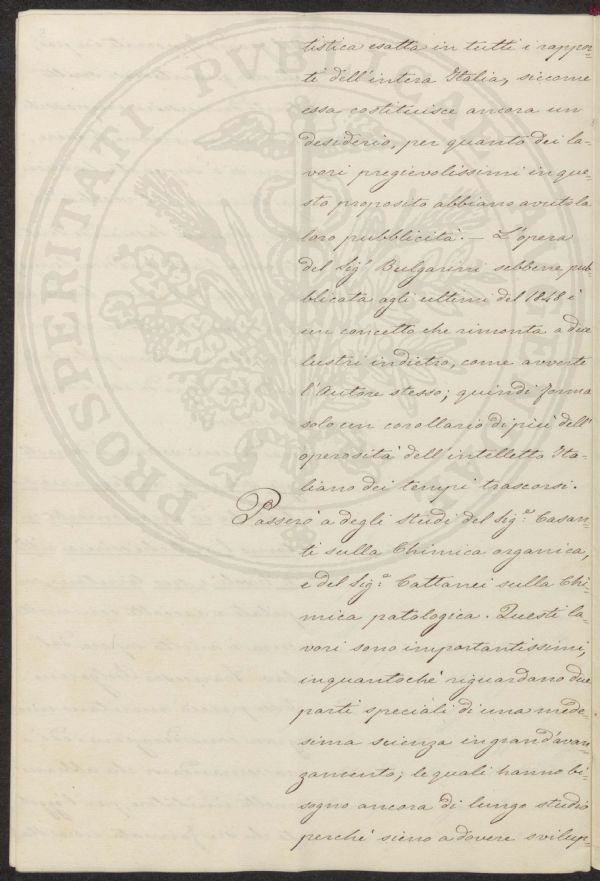 tistica esatta in tutti i rappor-
ti dell'intera Italia, siccome
essa costituisce ancora un
desiderio, per quanto dei la-
vori pregievolissimi in que-
sto proposito abbiano avuto la
loro pubblicità. — L'opera
del Sig.r Bulgarini sebbene pub-
blicata agli ultimi del 1848 è
un concetto che rimonta a due
lustri indietro, come avverte
l'Autore stesso; quindi forma
solo un corollario di più dell'
operosità dell'intelletto Ita-
liano dei tempi trascorsi.
Passerò a degli studi del Sig.e Casan-
ti sulla Chimica organica,
e del Sig.e Cattanei sulla Chi-
mica patologica. Questi la-
vori sono importantissimi,
inquantochè riguardano due
parti speciali di una mede-
sima scienza in grand'avan-
zamento; le quali hanno bi-
sogno ancora di lungo studio
perchè sieno a dovere svilup-
PROSPERITATI PVBLICAE